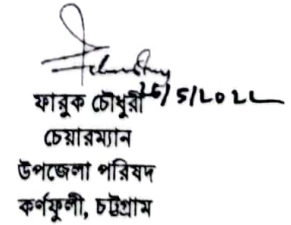 26/5/2022
ফারুক চৌধুরী
চেয়ারম্যান
উপজেলা পরিষদ
কর্ণফুলী, চট্টগ্রাম